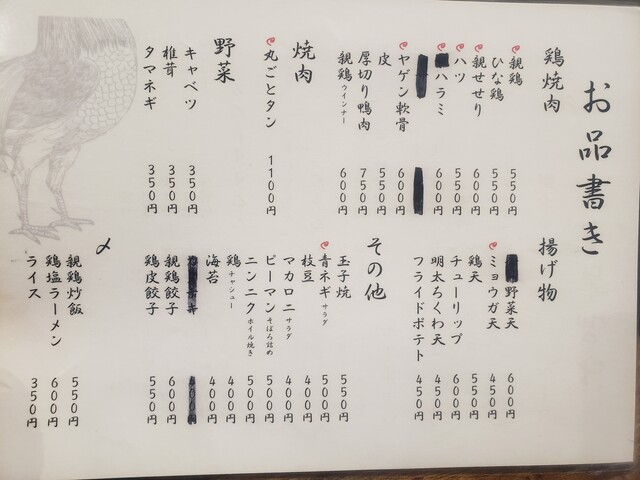 お品書き
鶏焼肉
親鶏 550円
ひな鶏 550円
親せせり 600円
ハツ 550円
ハラミ 600円
ヤゲン軟骨 600円
皮 550円
厚切り鴨肉 750円
親鶏ウインナー 600円
焼肉
丸ごとタン 1100円
野菜
キャベツ 350円
椎茸 350円
タマネギ 350円
揚げ物
野菜天 600円
ミョウガ天 450円
鶏天 550円
チューリップ 600円
明太ちくわ天 450円
フライドポテト 450円
その他
玉子焼 550円
青ネギサラダ 500円
枝豆 400円
マカロニサラダ 400円
ピーマンそぼろ詰め 500円
ニンニクホイル焼き 500円
鶏チャシュー 400円
海苔 400円
親鶏餃子 600円
鶏皮餃子 550円
〆
親鶏炒飯 550円
鶏塩ラーメン 600円
ライス 350円